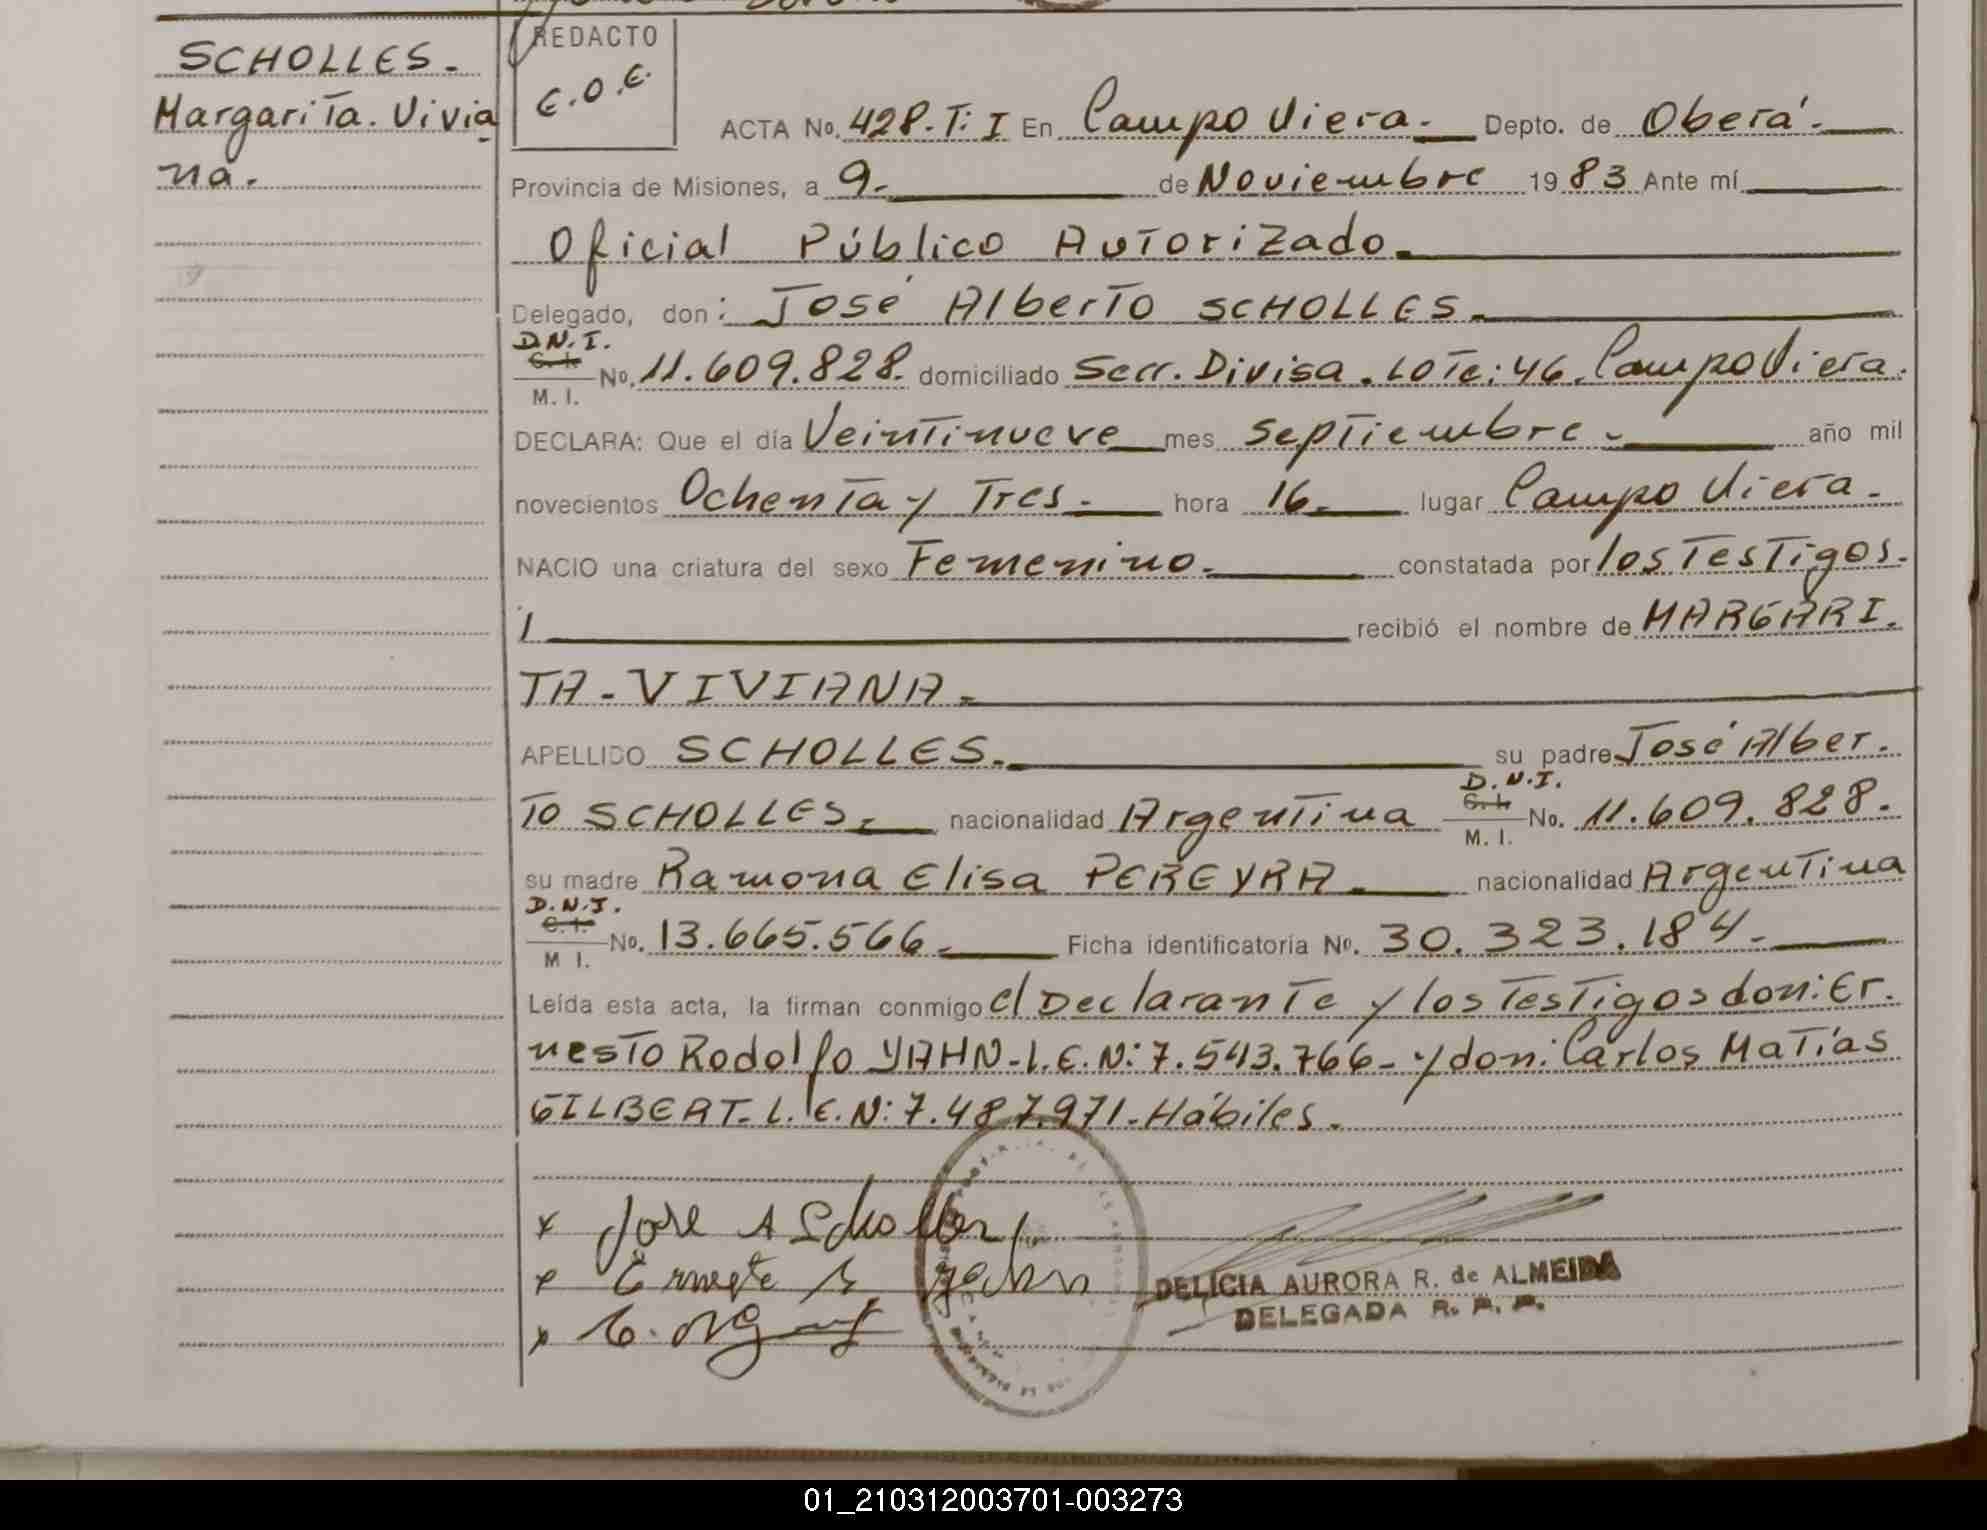 SCHOLLES.
Margarita. Vivia
na.
REDACTO
E.O.E.
ACTA No. 428. T: I En Campo Viera. Depto. de Oberá.
Provincia de Misiones, a 9. de Noviembre 19 83 Ante mí
Oficial Público Autorizado.
Delegado, don: José Alberto SCHOLLES.
D.N.I.
C. I.
M. I.
No. 11.609.828. domiciliado Secc. Divisa. LOTE: 46. Campo Viera.
DECLARA: Que el día Veintinueve mes septiembre. año mil
novecientos Ochenta y Tres. hora 16. lugar Campo Viera.
NACIO una criatura del sexo Femenino. constatada por los Testigos.
/ recibió el nombre de MARGARI.
TA - VIVIANA.
APELLIDO SCHOLLES. su padre José Alber.
D.N.I.
TO SCHOLLES. nacionalidad Argentina C. I. No. 11.609.828.
M. I.
su madre Ramona Elisa PEREYRA. nacionalidad Argentina
D.N.I.
C. I.
M I.
No. 13.665.566. Ficha identificatoria No. 30.323.184.
Leída esta acta, la firman conmigo el Declarante y los Testigos don: Er.
nesto Rodolfo YAHN - L.E.N: 7.543.766 - y don: Carlos Matías
GILBERT. L.E.N: 7.487.971 - Hábiles.
x José A Scholles
x Ernesto R Yahn
x
DELICIA AURORA R. de ALMEIDA
DELEGADA R. P. P.
01_210312003701-003273